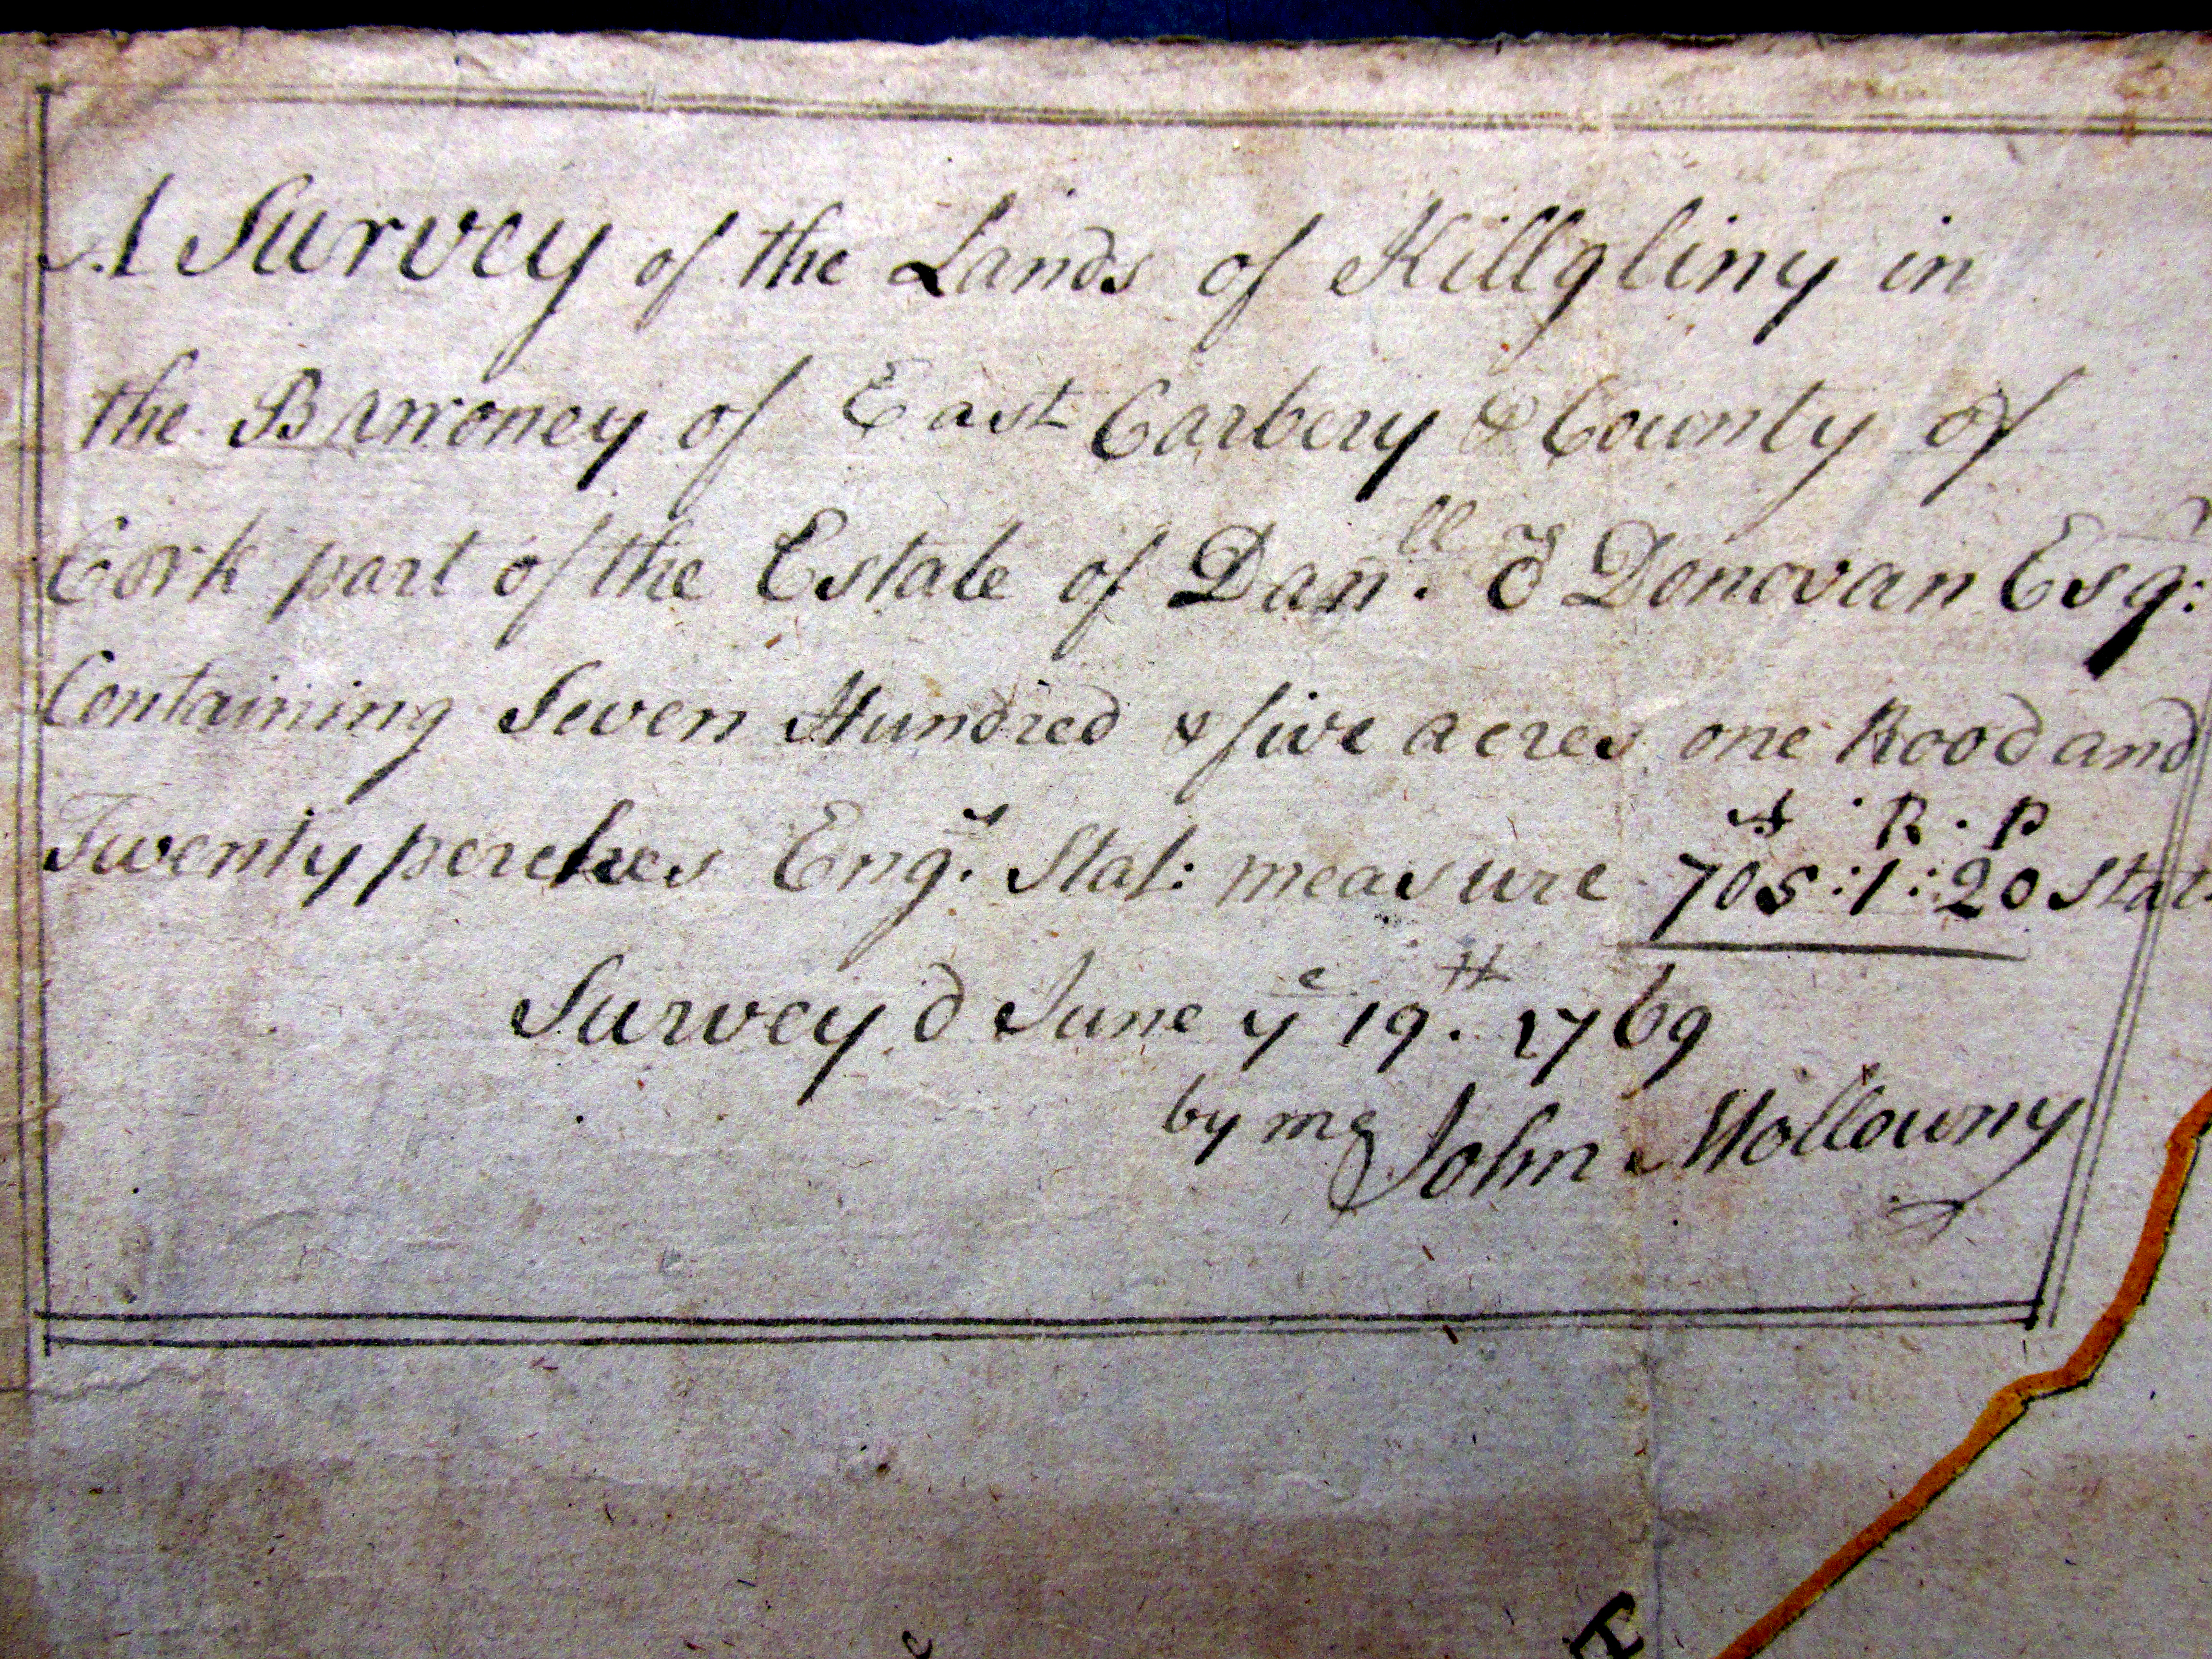 A Survey of the Lands of Killgliny in
the Barroney of East Carbery & County of
Cork part of the Estate of Dan.ll O Donovan Esq:
Containing Seven Hundred & five acres one Rood and
Twenty perches Eng.s Stat: measure
A . R . P
705 : 1 : 20 Stat
Survey'd June ye 19.th 1769
by me John Mollowny